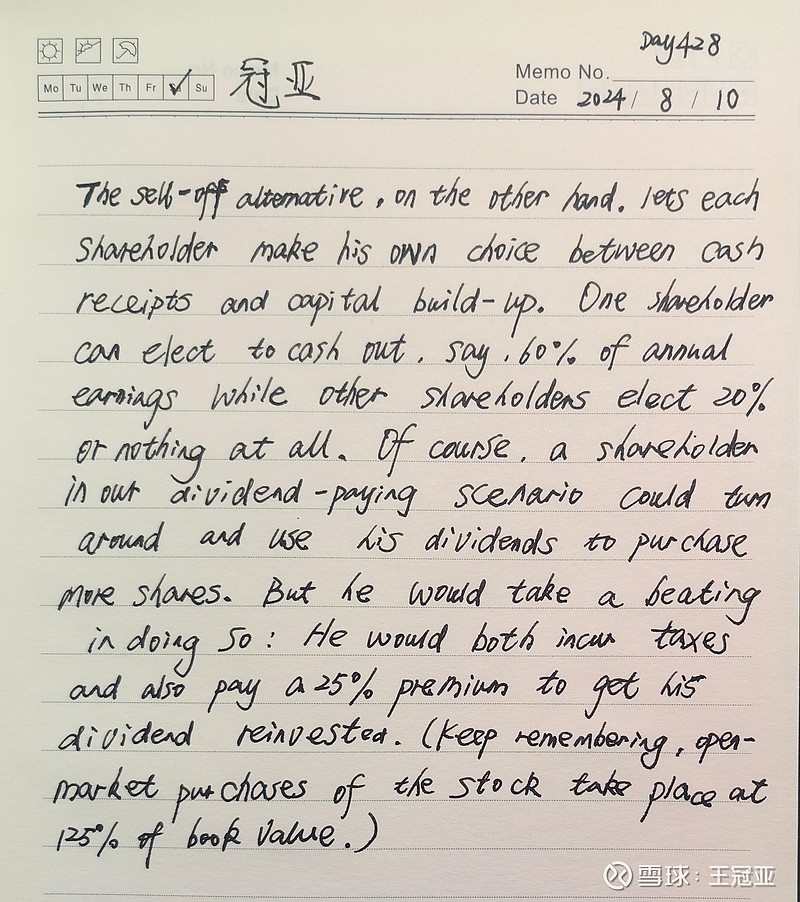 Day 428
Mo Tu We Th Fr Sa Su
冠亚
Memo No.
Date 2024 / 8 / 10
The sell-off alternative, on the other hand, lets each
shareholder make his own choice between cash
receipts and capital build-up. One shareholder
can elect to cash out, say, 60% of annual
earnings while other shareholders elect 20%
or nothing at all. Of course, a shareholder
in our dividend-paying scenario could turn
around and use his dividends to purchase
more shares. But he would take a beating
in doing so: He would both incur taxes
and also pay a 25% premium to get his
dividend reinvested. (Keep remembering, open-
market purchases of the stock take place at
125% of book value.)
雪球:王冠亚